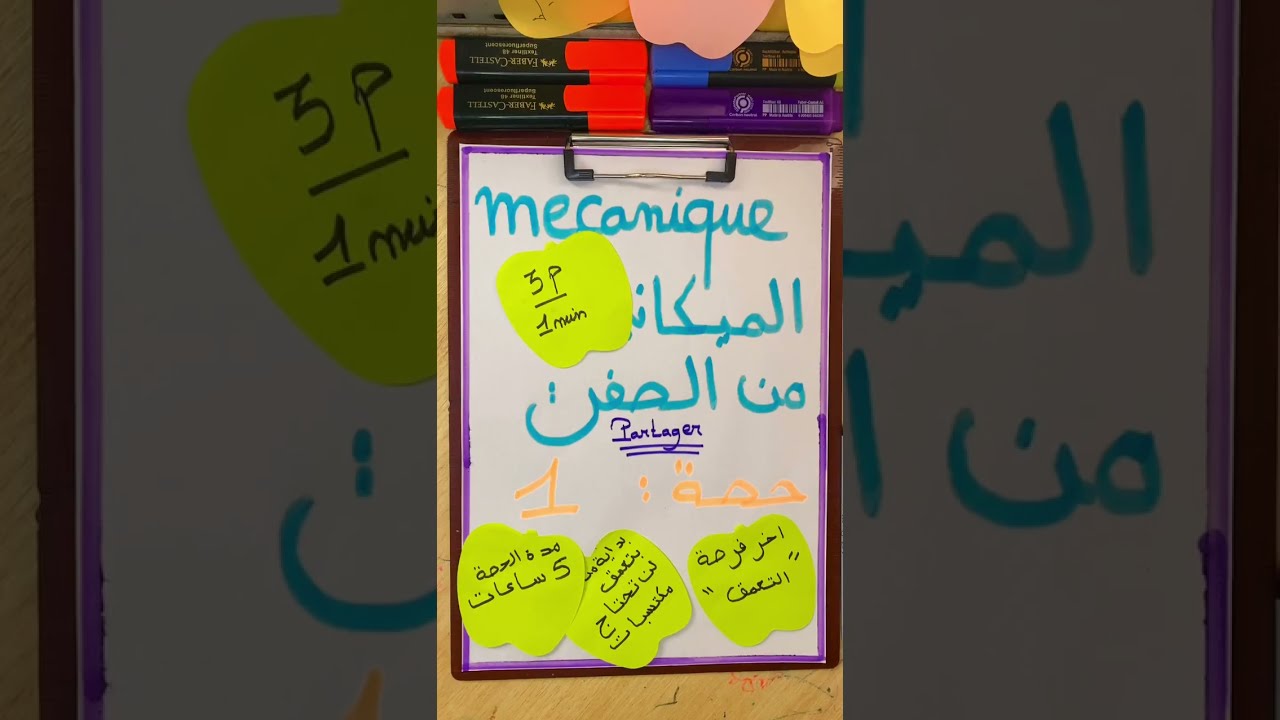 FABER-CASTELL
Textliner 46
Superfluorescent
FABER-CASTELL
Textliner 46
Superfluorescent
mecanique
الميكانيـ
3P
1min
من الصفر :
Partager
حصة : 1
اخر فرصة
"التعمق"
بداية
بتعمق
لن تحتاج
مكتسبات
مدة الحصة
5 ساعات